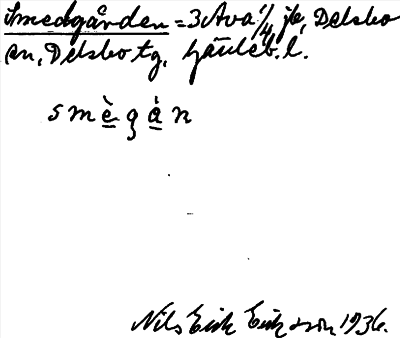 Smedgården = 3 Ava 1/4 je, Delsbo
sn, Delsbo tg, Gävleb. l.
smègàn
Nils Erik Eriksson 1936.